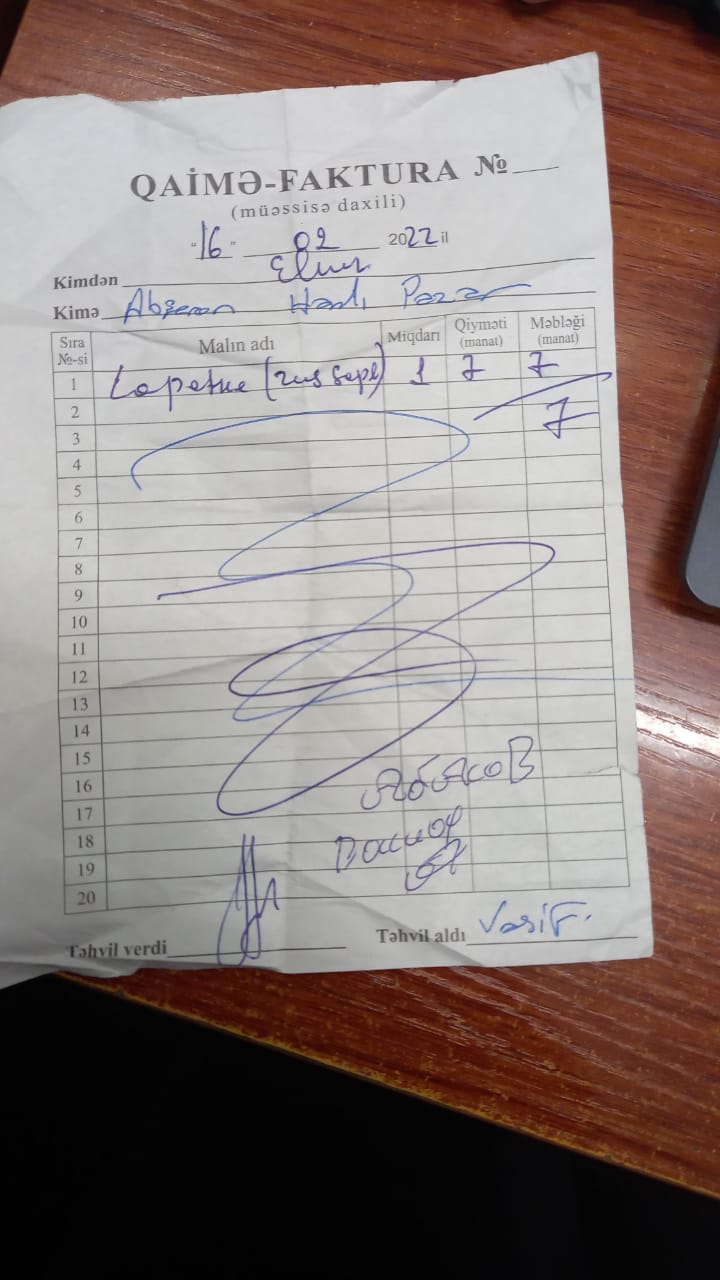 QAİMƏ-FAKTURA №
(müəssisə daxili)
"16" 02 2022 il
Kimdən Elnur
Kimə Abşeron Hədi Pazar
Sıra №-si Malın adı Miqdarı Qiyməti (manat) Məbləği (manat)
1 Lapatke 1 7 7
2 7
3
4
5
6
7
8
9
10
11
12
13
14
15
16
17
18
19
20
Təhvil verdi Təhvil aldı Vasif.